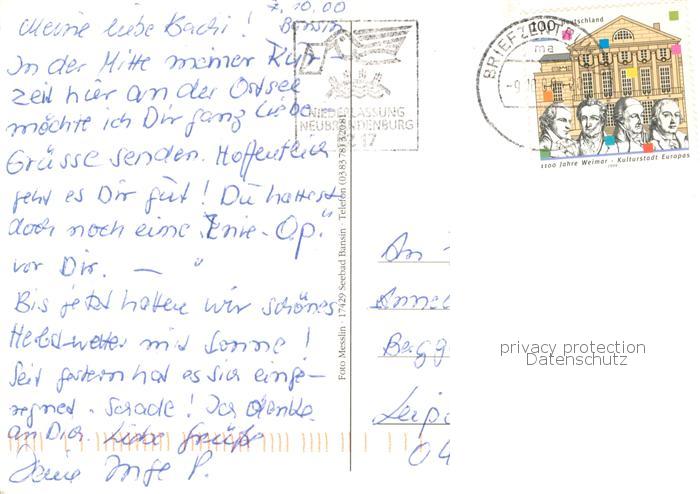 7.10.00
Bansin
Meine liebe Bachi!
In der Mitte meiner Kur-
zeit hier an der Ostsee
möchte ich Dir ganz liebe
Grüsse senden. Hoffentlich
geht es Dir gut! Du hattest
doch noch eine "Knie-Op."
vor Dir. —
Bis jetzt hatten wir schönes
Herbstwetter mit Sonne!
Seit gestern hat es sich einge-
regnet. Schade! Ich denke
an Dich. Liebe Grüße
Deine Inge P.
NIEDERLASSUNG
NEUBRANDENBURG
17
Foto Messlin · 17429 Seebad Bansin · Telefon (038378) 32081
BRIEFZENTR
ma
100 Deutschland
1100 Jahre Weimar - Kulturstadt Europas
1999
An
Anne
Begg
Leip
04
privacy protection
Datenschutz